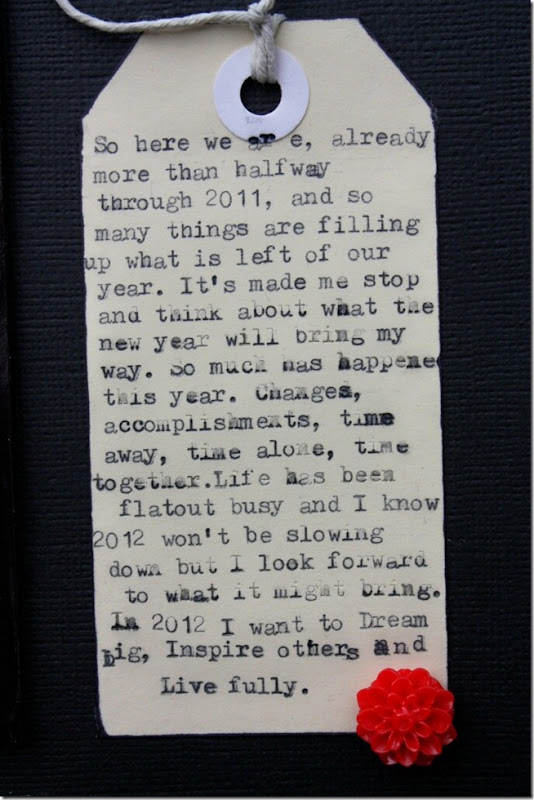 So here we ar e, already
more than halfway
through 2011, and so
many things are filling
up what is left of our
year. It's made me stop
and think about what the
new year will bring my
way. So much has happene
this year. Changes,
accomplishments, time
away, time alone, time
together.Life has been
flatout busy and I know
2012 won't be slowing
down but I look forward
to what it might bring.
In 2012 I want to Dream
big, Inspire others and
Live fully.